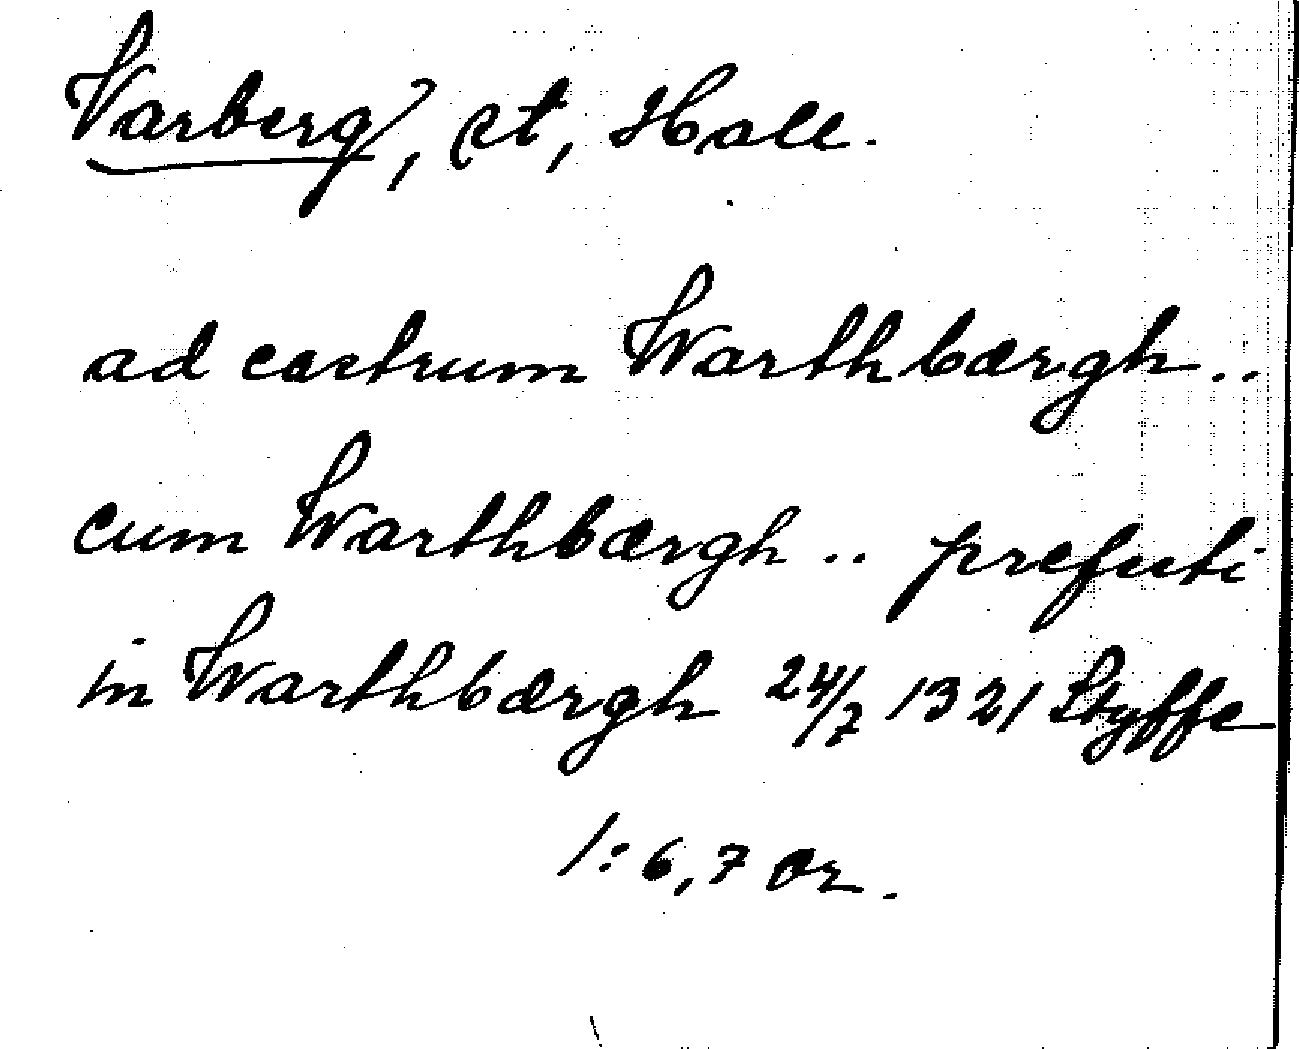 Varberg, st, Hall.
ad castrum Warthbærgh ..
cum Warthbærgh .. prefecti
in Warthbærgh 24/7 1321 Styffe
1: 6, 7 Or.